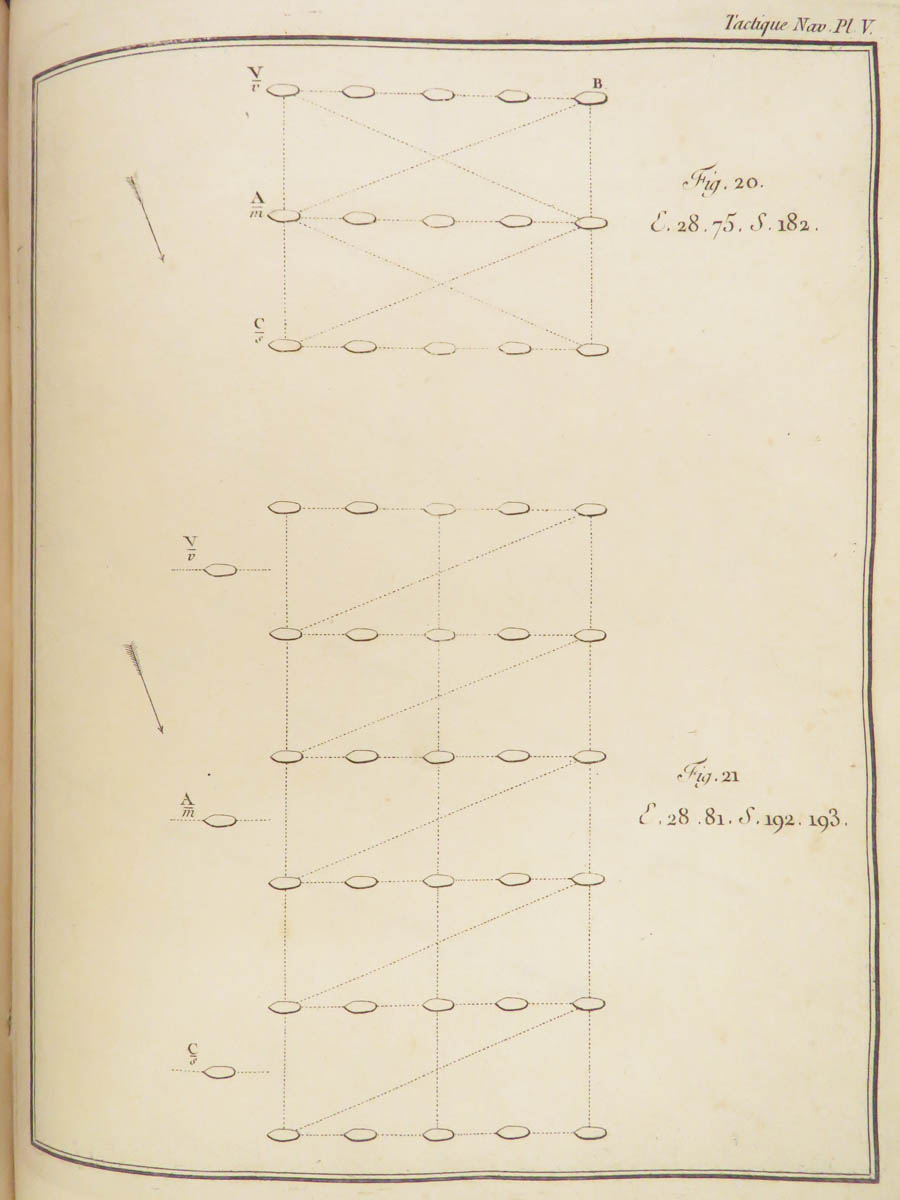 Tactique Nav. Pl. V.
V
v
B
A
m
C
s
Fig. 20.
E. 28. 75. S. 182.
V
v
A
m
C
s
Fig. 21
E. 28. 81. S. 192. 193.